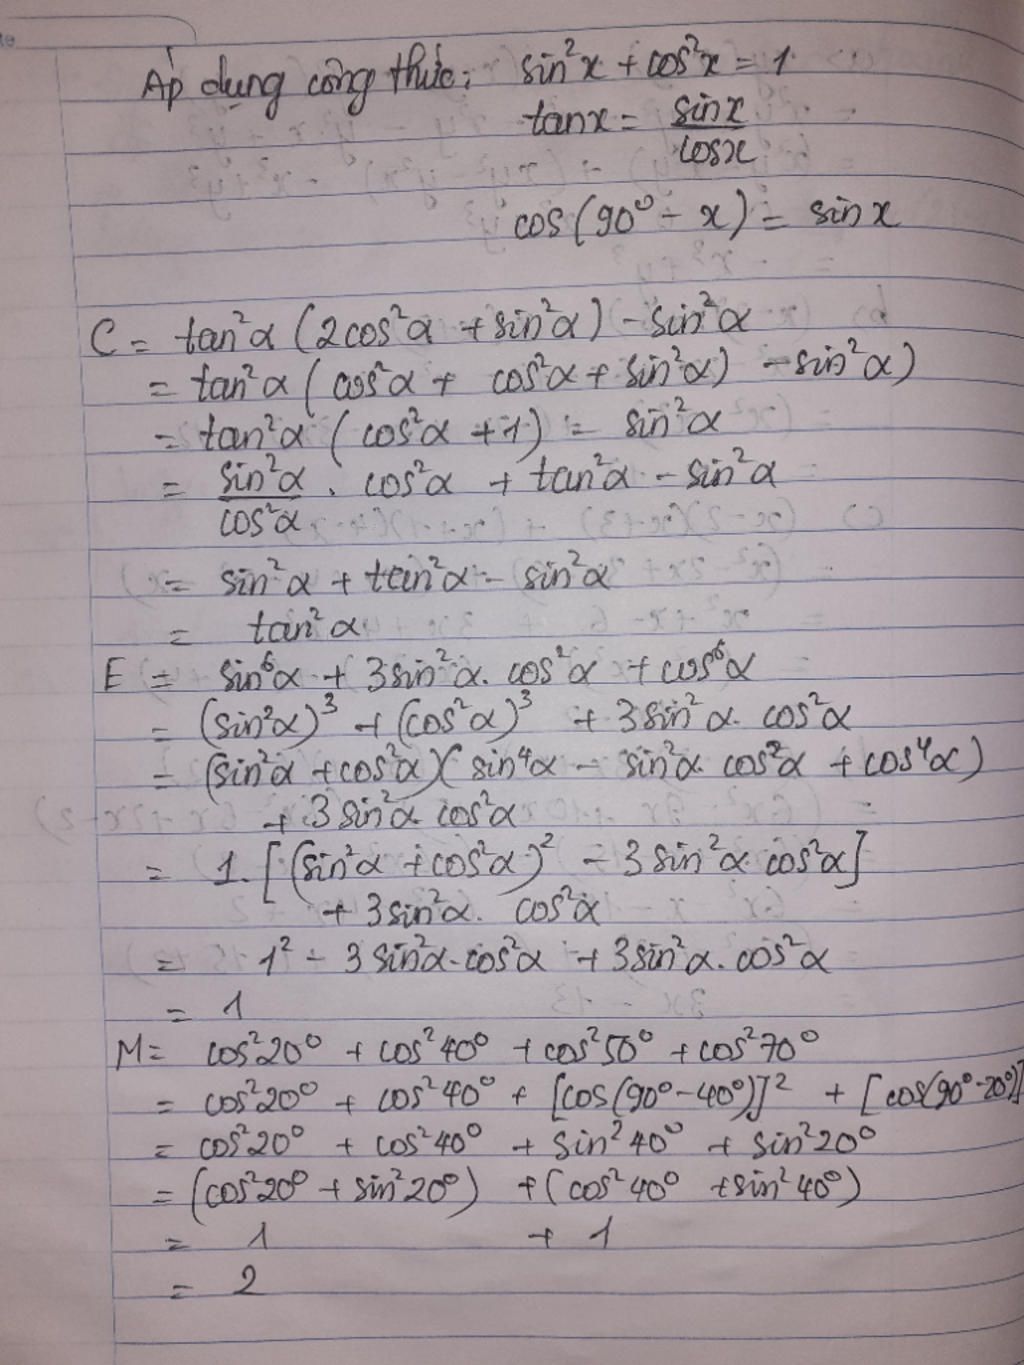 Áp dụng công thức: sin²x + cos²x = 1
tanx = sinx / cosx
cos(90° - x) = sinx
C = tan²α (2cos²α + sin²α) - sin²α
= tan²α (cos²α + cos²α + sin²α) - sin²α)
= tan²α (cos²α + 1) = sin²α
= sin²α / cos²α . cos²α + tan²α - sin²α
= sin²α + tan²α - sin²α
= tan²α
E = sin⁶α + 3sin²α. cos²α + cos⁶α
= (sin²α)³ + (cos²α)³ + 3sin²α. cos²α
= (sin²α + cos²α)(sin⁴α - sin²α. cos²α + cos⁴α)
+ 3sin²α. cos²α
= 1. [(sin²α + cos²α)² - 3sin²α. cos²α]
+ 3sin²α. cos²α
= 1² - 3sin²α.cos²α + 3sin²α. cos²α
= 1
M = cos²20° + cos²40° + cos²50° + cos²70°
= cos²20° + cos²40° + [cos(90° - 40°)]² + [cos(90° - 20°)]
= cos²20° + cos²40° + sin²40° + sin²20°
= (cos²20° + sin²20°) + (cos²40° + sin²40°)
= 1 + 1
= 2